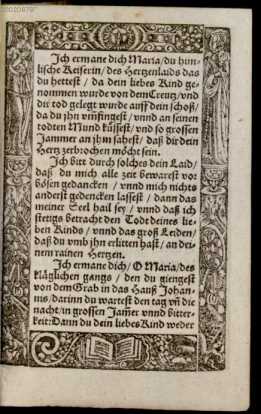 Ich ermane dich Maria/du him-
lische Keiserin/des Hertzenlaids das
du hettest / da dein liebes Kind ge-
nommen wurde von dem Creutz/vnd
dir tod gelegt wurde auff dein schoß/
da du jhn vmfingest/ vnnd an seinen
todten Mund küssest/ vnd so grossen
Jammer an jhm sahest/ daß dir dein
Hertz zerbrochen möcht sein.
Ich bitt durch solches dein Laid/
daß du mich alle zeit bewarest vor
bösen gedancken / vnnd mich nichts
anderst gedencken lassest / dann das
meiner Seel hail sey / vnnd daß ich
stetigs betracht den Todt deines lie-
ben Kinds / vnnd das groß Leiden/
daß du vmb jhn erlitten hast/ an dei-
nem rainen Hertzen.
Ich ermane dich/ O Maria/des
kläglichen gangs / den du giengest
von dem Grab in das Hauß Johan-
nis/darinn du wartest den tag vñ die
nacht/in grossen Jam̃er vnnd bitter-
keit: Dann du dein liebes Kind weder